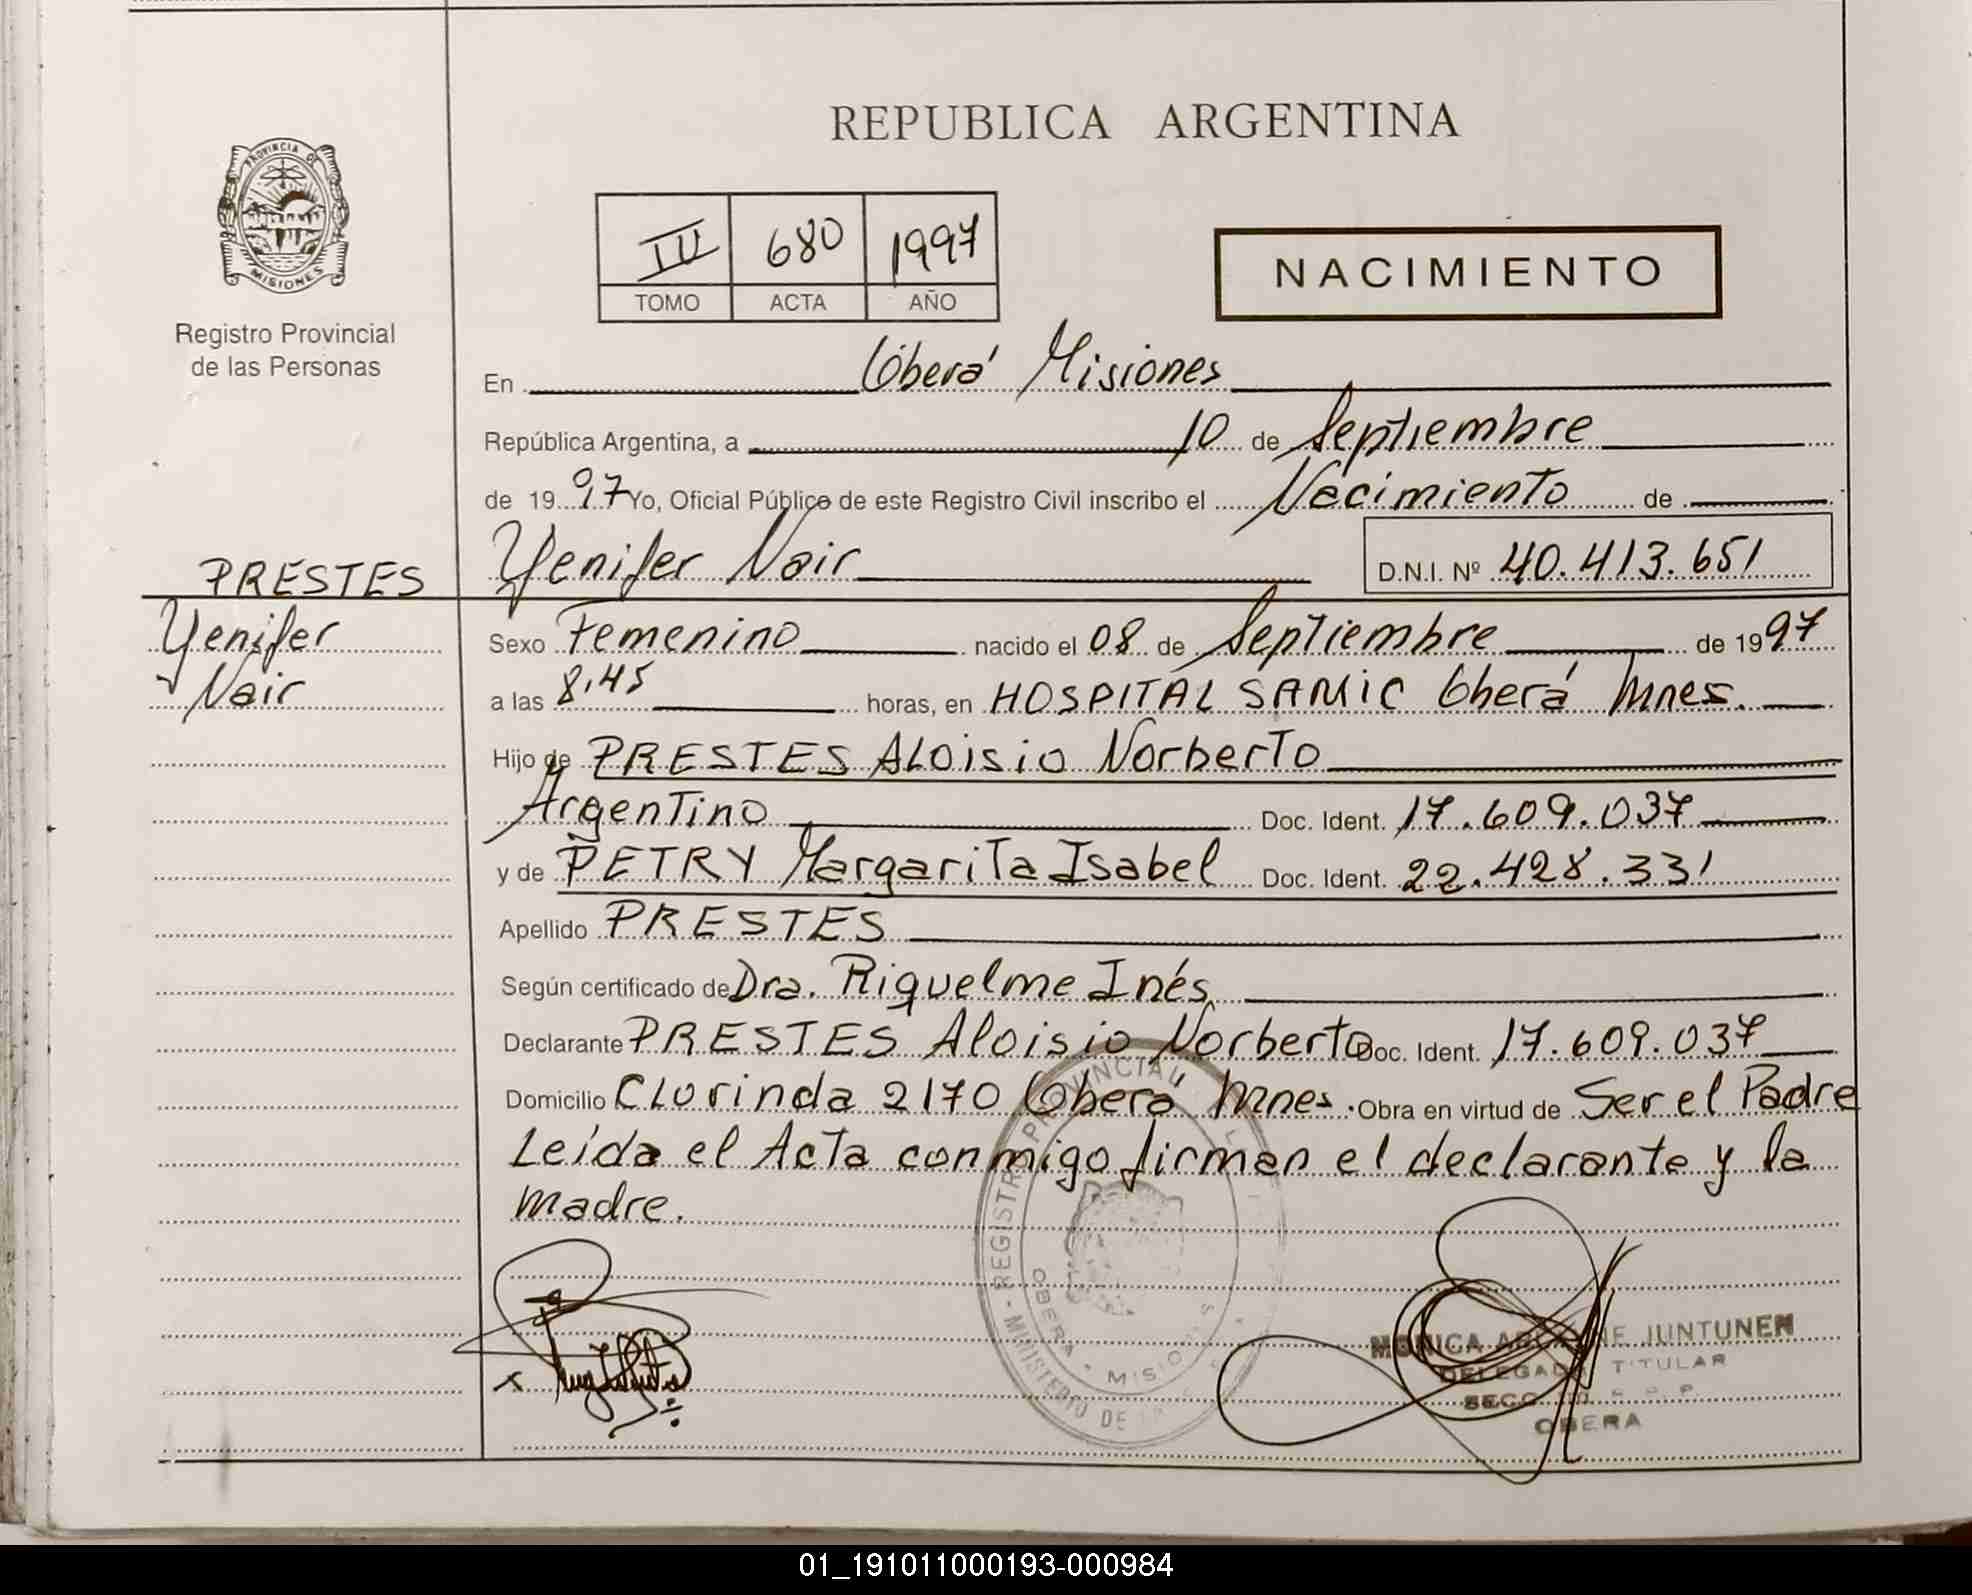 REPUBLICA ARGENTINA
PROVINCIA DE
MISIONES
Registro Provincial
de las Personas
680 1997
TOMO ACTA AÑO
NACIMIENTO
En Oberá Misiones
República Argentina, a 10 de Septiembre
de 1997 Yo, Oficial Público de este Registro Civil inscribo el Nacimiento de
PRESTES Yenifer Nair D.N.I. Nº 40.413.651
Yenifer
Nair
Sexo Femenino nacido el 08 de Septiembre de 1997
a las 8,45 horas, en HOSPITAL SAMIC Oberá Mnes.
Hijo de PRESTES Aloisio Norberto
Argentino Doc. Ident. 17.609.037
y de PETRY Margarita Isabel Doc. Ident. 22.428.331
Apellido PRESTES
Según certificado de Dra. Riquelme Inés
Declarante PRESTES Aloisio Norberto Doc. Ident. 17.609.037
Domicilio Clorinda 2170 Oberá Mnes. Obra en virtud de Ser el Padre
Leída el Acta conmigo firman el declarante y la
madre.
REGISTRO PROVINCIAL
MINISTERIO DE
OBERA MISIONES
MONICA JUNTUNEN
DELEGADA TITULAR
OBERA
01_191011000193-000984